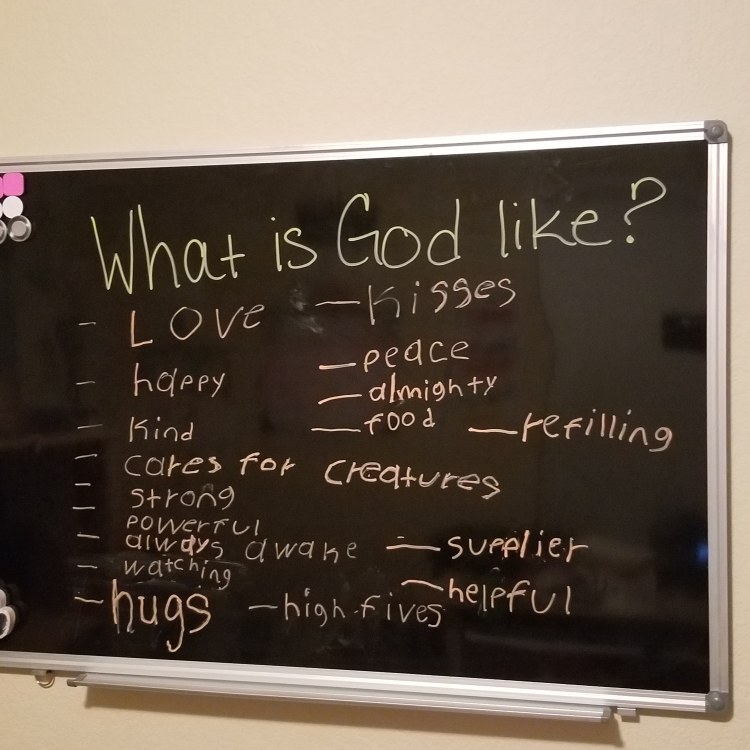 What is God like?
- Love
- Kisses
- happy
- peace
- almighty
- Kind
- food
- refilling
- cares for creatures
- strong
- powerful
- always awake
- supplier
- watching
- helpful
- hugs
- high-fives